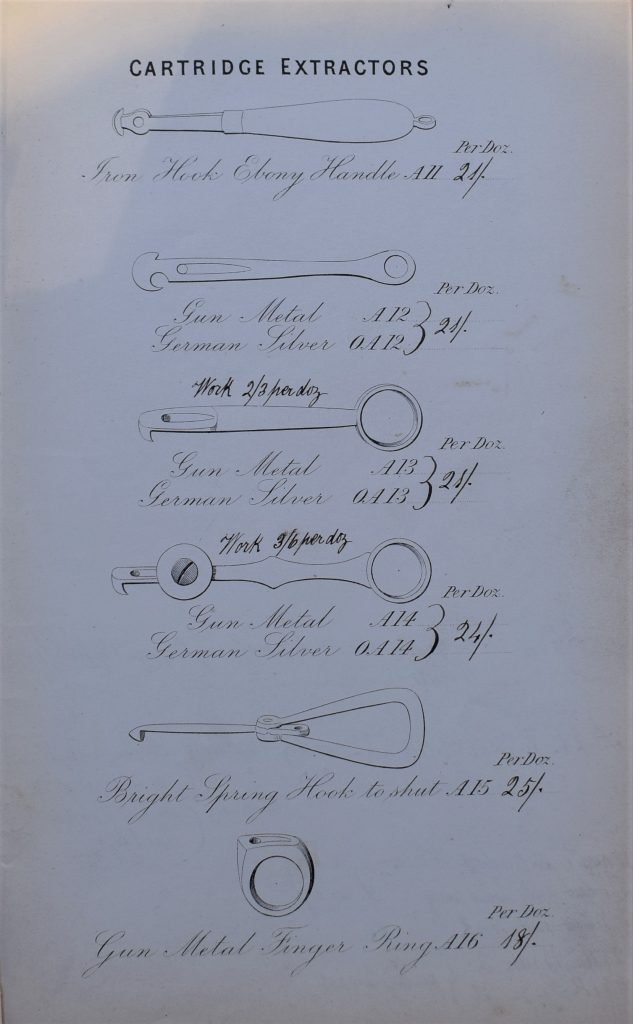 CARTRIDGE EXTRACTORS
Per Doz.
Iron Hook Ebony Handle A11 21/.
Per Doz.
Gun Metal A12
German Silver OA12 } 21/.
Work 2/3 per doz
Per Doz.
Gun Metal A13
German Silver OA13 } 21/.
Work 3/6 per doz
Per Doz.
Gun Metal A14
German Silver OA14 } 24/.
Per Doz.
Bright Spring Hook to shut A15 25/.
Per Doz.
Gun Metal Finger Ring A16 18/.